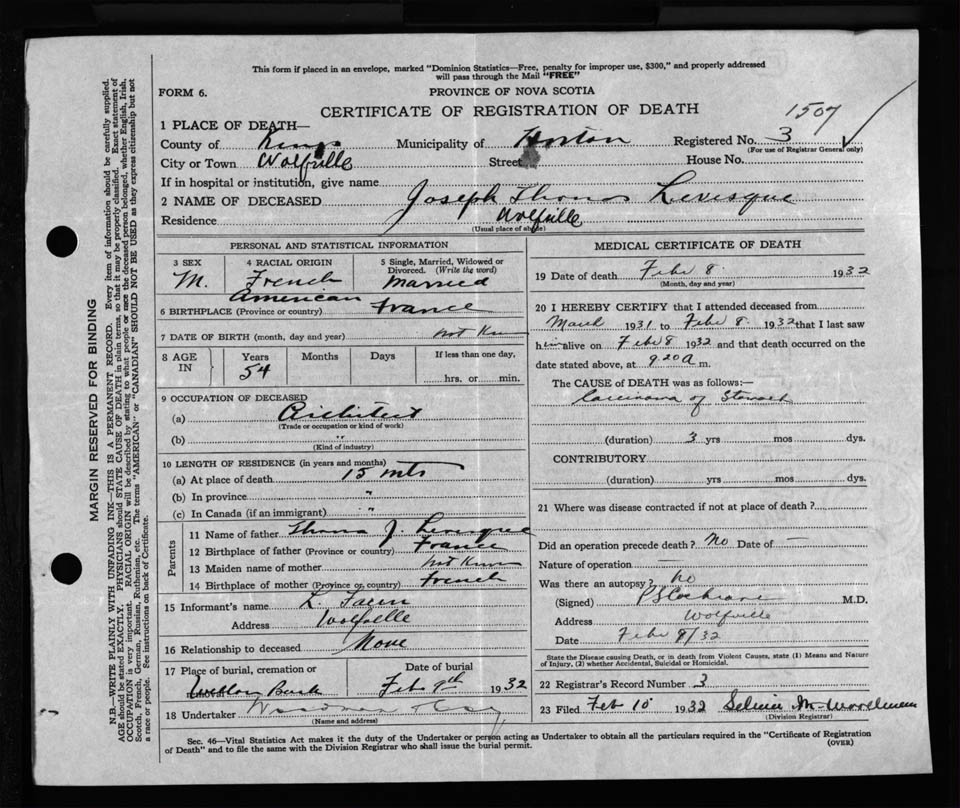 This form if placed in an envelope, marked "Dominion Statistics—Free, penalty for improper use, $300," and properly addressed
will pass through the Mail "FREE"
FORM 6.
PROVINCE OF NOVA SCOTIA
CERTIFICATE OF REGISTRATION OF DEATH
1507
1 PLACE OF DEATH—
County of Kings Municipality of Horton Registered No. 3
(For use of Registrar General only)
City or Town Wolfville Street House No.
If in hospital or institution, give name
2 NAME OF DECEASED Joseph Thomas Levesque
Residence Wolfville
(Usual place of abode)
PERSONAL AND STATISTICAL INFORMATION
3 SEX 4 RACIAL ORIGIN 5 Single, Married, Widowed or Divorced. (Write the word)
M. French Married
American
6 BIRTHPLACE (Province or country) France
7 DATE OF BIRTH (month, day and year) not Known
8 AGE IN Years Months Days If less than one day,
54 hrs. or min.
9 OCCUPATION OF DECEASED
(a) Architect
(Trade or occupation or kind of work)
(b) "
(Kind of industry)
10 LENGTH OF RESIDENCE (in years and months)
(a) At place of death 15 mts
(b) In province "
(c) In Canada (if an immigrant) "
Parents
11 Name of father Thomas J. Levesque
12 Birthplace of father (Province or country) France
13 Maiden name of mother not Known
14 Birthplace of mother (Province or country) French
15 Informant's name L.
Address Wolfville
16 Relationship to deceased None
17 Place of burial, cremation or Date of burial
Feb 9th 1932
18 Undertaker Woodman
(Name and address)
MEDICAL CERTIFICATE OF DEATH
19 Date of death Feb 8 1932
(Month, day and year)
20 I HEREBY CERTIFY that I attended deceased from
March 1931 to Feb 8 1932 that I last saw
him alive on Feb 8 1932 and that death occurred on the
date stated above, at 9.20 a m.
The CAUSE OF DEATH was as follows:—
Carcinoma of Stomach
(duration) 3 yrs mos dys.
CONTRIBUTORY
(duration) yrs mos dys.
21 Where was disease contracted if not at place of death?
Did an operation precede death? No Date of —
Nature of operation —
Was there an autopsy? No
(Signed) P S Cochrane M.D.
Address Wolfville
Date Feb 8/32
State the Disease causing Death, or in death from Violent Causes, state (1) Means and Nature
of Injury, (2) whether Accidental, Suicidal or Homicidal.
22 Registrar's Record Number 3
23 Filed Feb 10 1932
(Division Registrar)
Sec. 46—Vital Statistics Act makes it the duty of the Undertaker or person acting as Undertaker to obtain all the particulars required in the "Certificate of Registration
of Death" and to file the same with the Division Registrar who shall issue the burial permit.
(OVER)
MARGIN RESERVED FOR BINDING
N.B.—WRITE PLAINLY WITH UNFADING INK—THIS IS A PERMANENT RECORD. Every item of information should be carefully supplied.
AGE should be stated EXACTLY. PHYSICIANS should STATE CAUSE OF DEATH in plain terms, so that it may be properly classified. Exact statement of
OCCUPATION is very important. RACIAL ORIGIN will be described by stating to what people or race the deceased person belonged, whether English, Irish,
Scotch, French, German, Russian, Ruthenian, etc. The terms "AMERICAN" or "CANADIAN" SHOULD NOT BE USED as they express citizenship but not
a race or people. See instructions on back of Certificate.